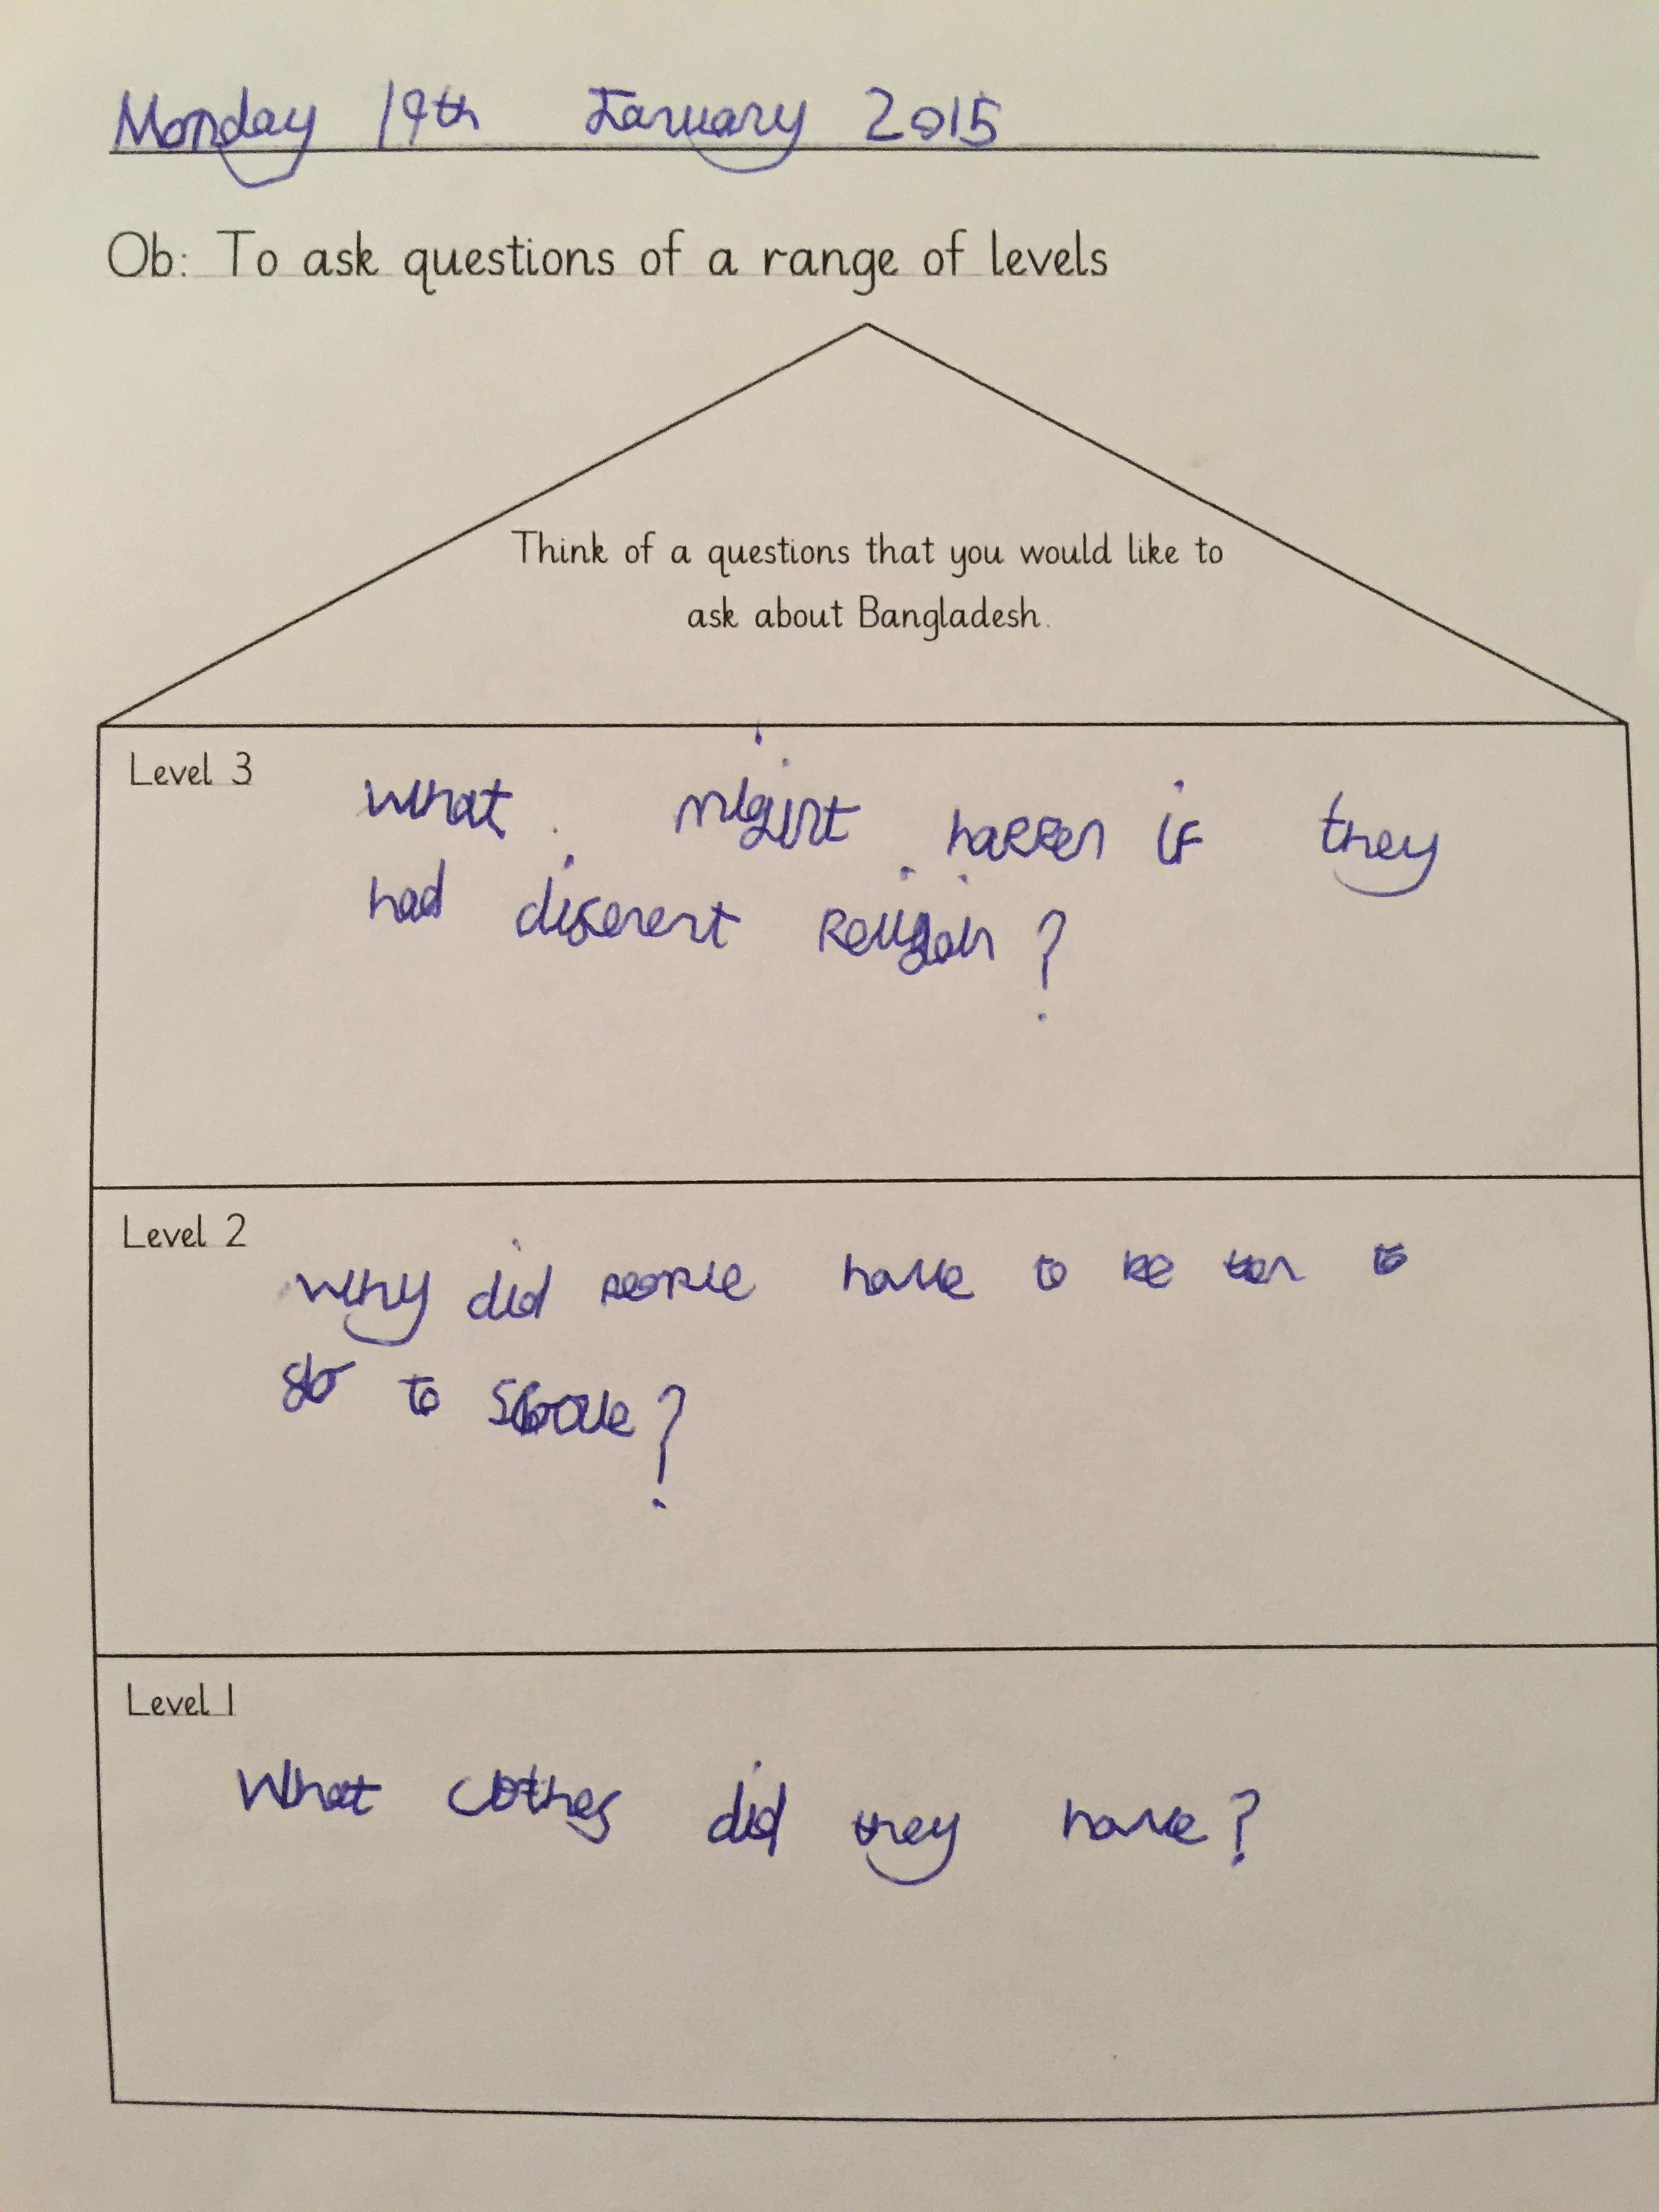 Monday 19th January 2015
Ob: To ask questions of a range of levels
Think of a questions that you would like to
ask about Bangladesh.
Level 3
What might happen if they
had diferent Religoin ?
Level 2
Why did people have to be ten to
go to scoole?
Level 1
What clothes did they have?